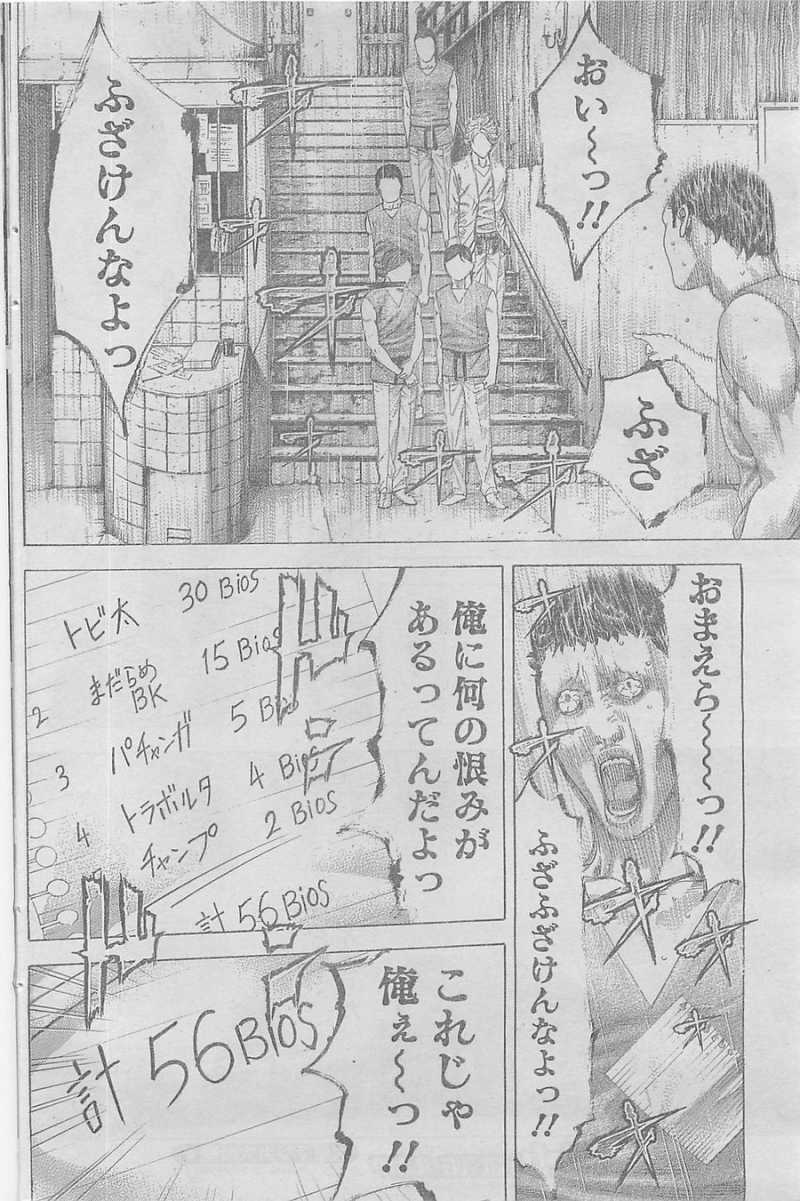 おい～っ!!
ふざ
ふざけんなよっ
おまえら～～～っ!!
ふざふざけんなよっ!!
俺に何の恨みが
あるってんだよっ
トビ太 30 Bios
2 まだらめBK 15 Bios
3 パチャンガ 5 Bios
4 トラボルタ 4 Bios
チャンプ 2 Bios
計 56 Bios
これじゃ
俺ぇ～っ!!
計 56 Bios